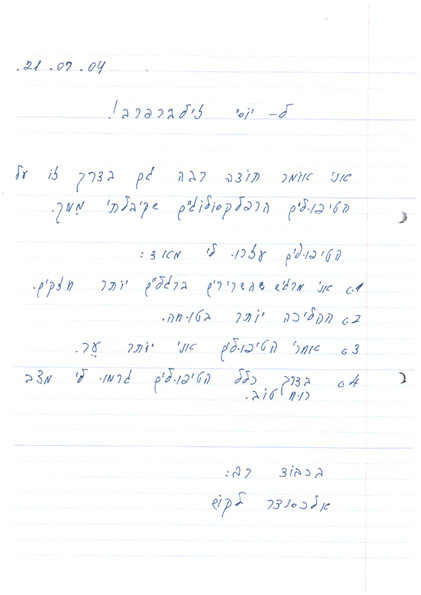 21.07.04.
ל- יוסי זילברפרב!
אני אומר תודה רבה גם בדרך זו על
הטיפולים הרפלקסולוגים שקיבלתי ממך.
הטיפולים עזרו לי מאוד:
1. אני מרגיש שהשרירים ברגליים יותר חזקים.
2. ההליכה יותר בטוחה.
3. אחרי הטיפולים אני יותר עֵר.
4. בדרך כלל הטיפולים גרמו לי מצב
רוח טוב.
בכבוד רב:
אלכסנדר לקוש